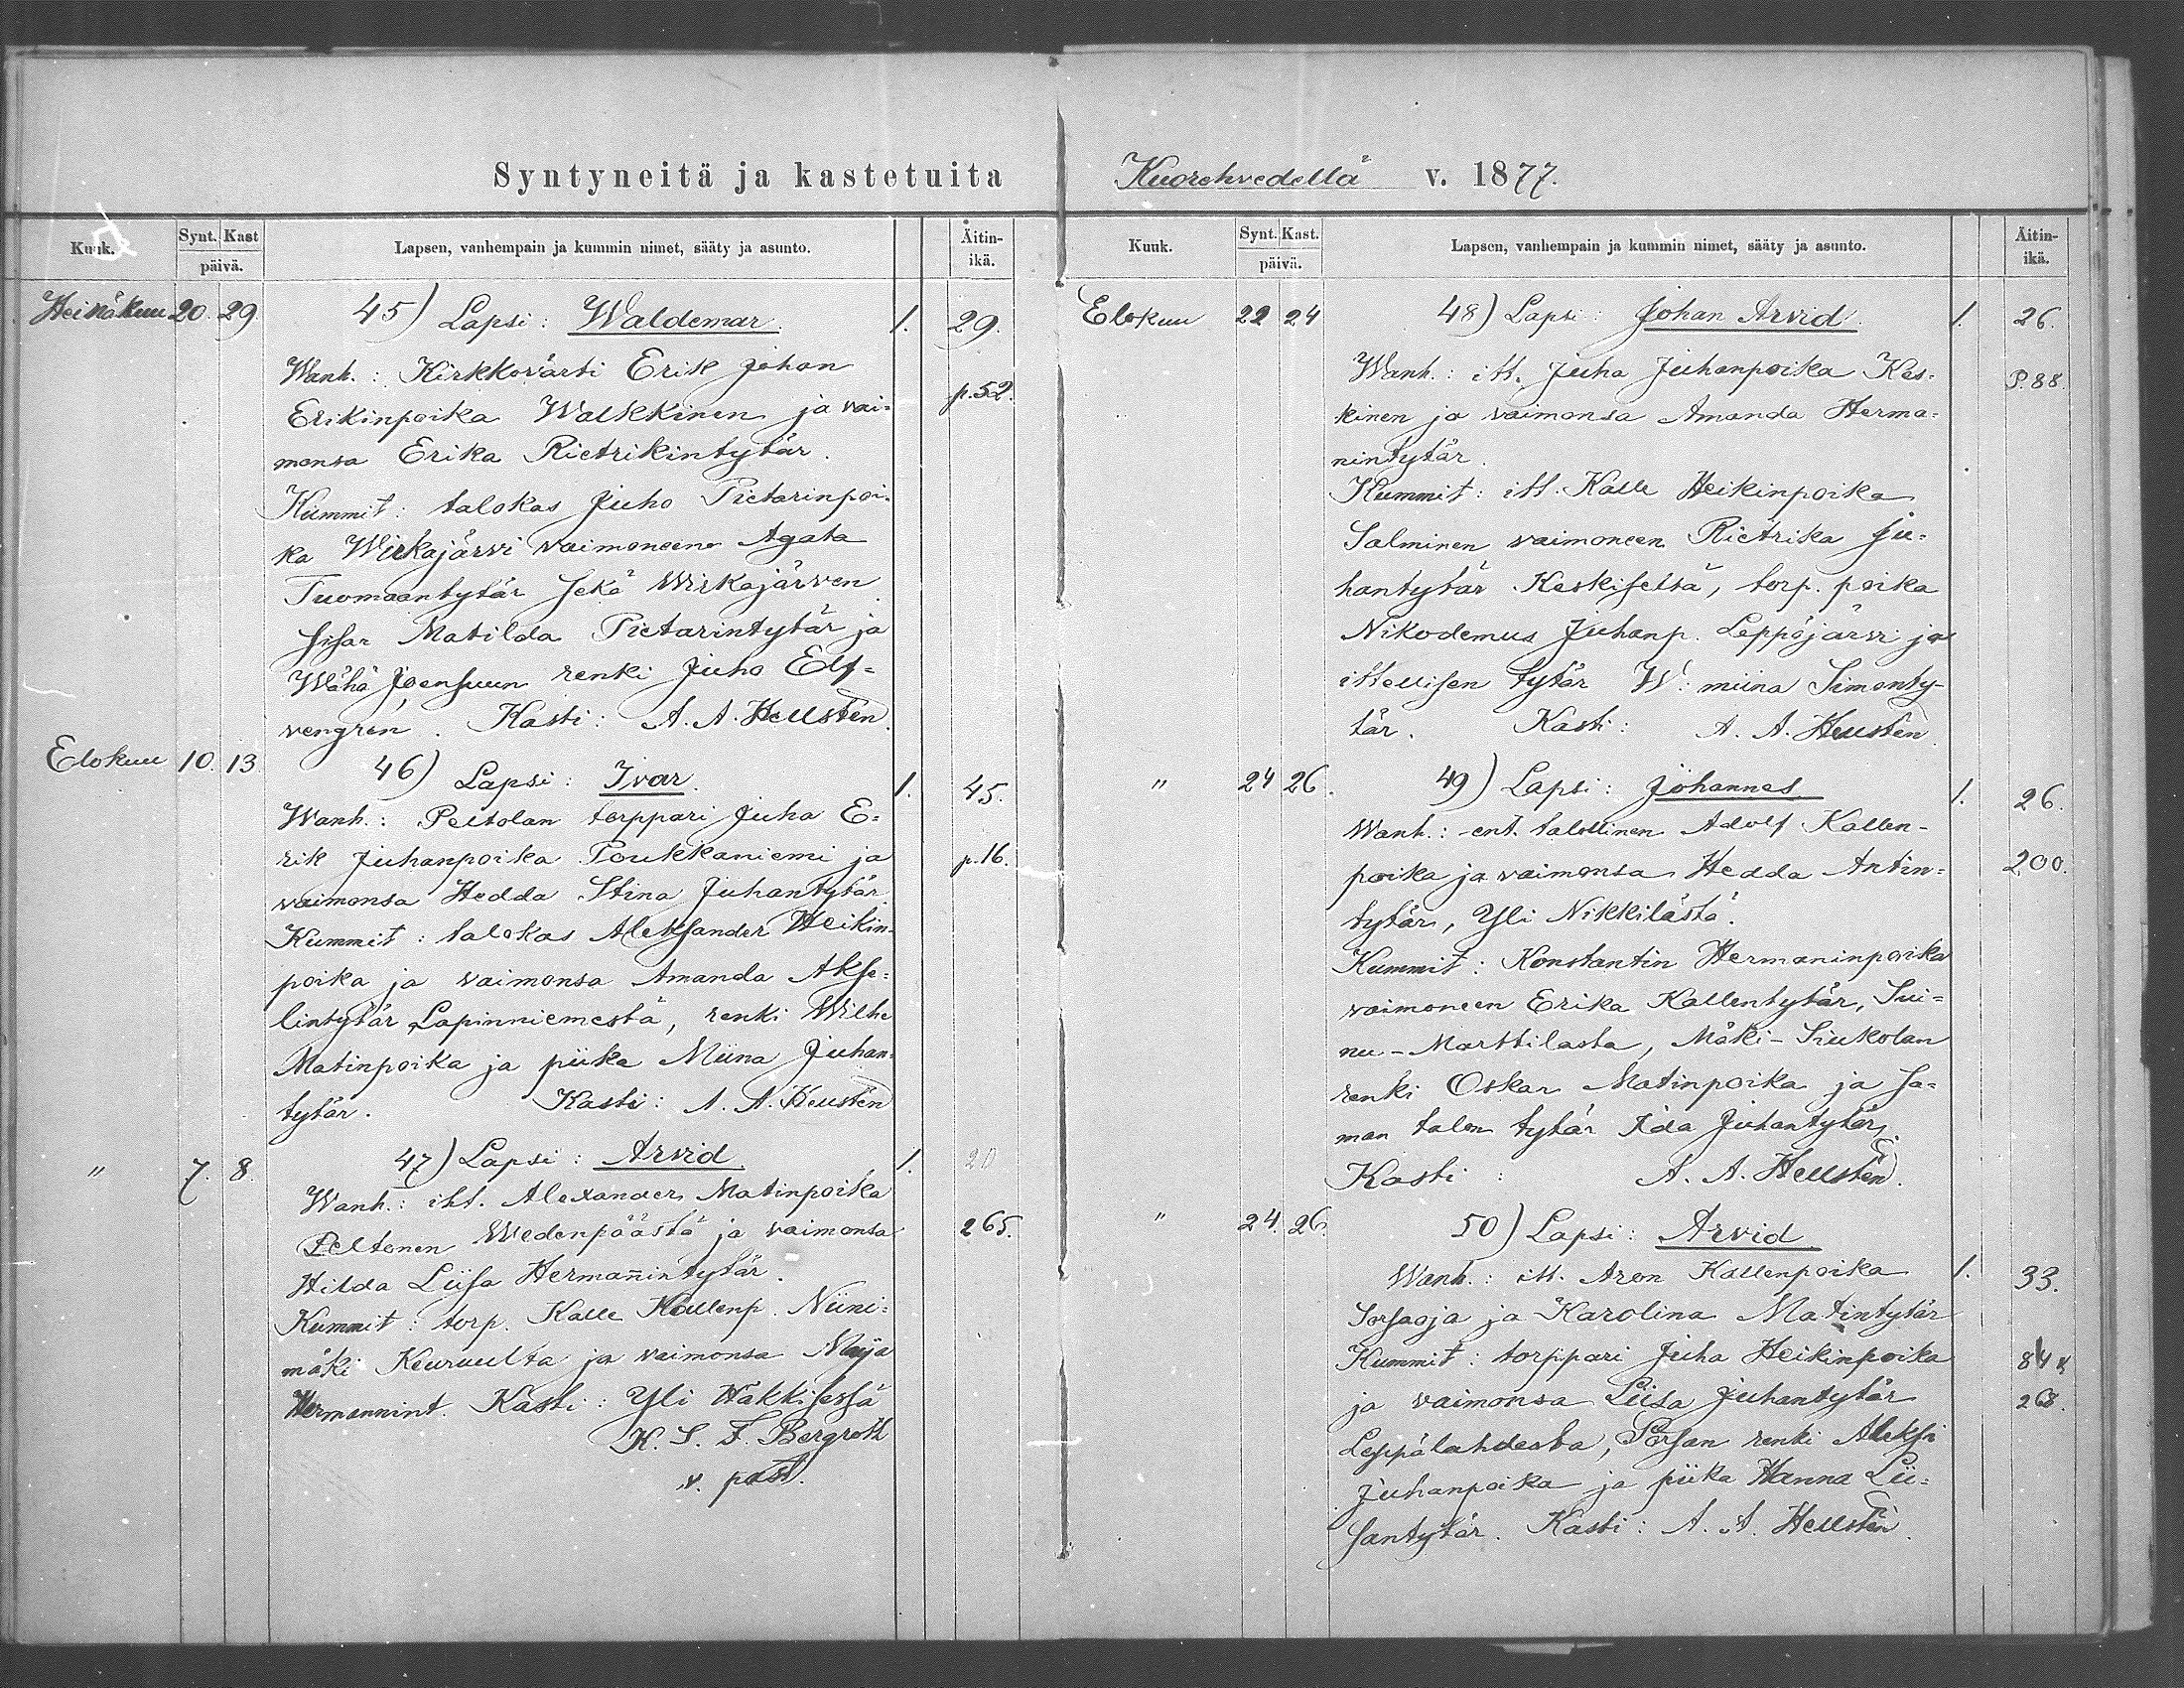 Syntyneitä ja kastetuita Kuorehvedellä v. 1877.
Kuuk. Synt. Kast päivä. Lapsen, vanhempain ja kummin nimet, sääty ja asunto. Äitin-ikä.
Heinäkuu 20. 29. 45) Lapsi: Waldemar 1. 29.
Wanh.: Kirkkovärti Erik Johan
Erikinpoika Walkkinen ja vai= p.52.
monsa Erika Rietrikintytär.
Kummit: talokas Juho Pietarinpoi-
ka Wirkajärvi vaimoneen Agata
Tuomaantytär sekä Wirkajärven
sisar Matilda Pietarintytär ja
Wähä Joensuun renki Juho Elf=
vengren. Kasti: A. A. Hellstén.
Elokuu 10. 13. 46) Lapsi: Ivar. 1. 45.
Wanh.: Peltolan torppari Juha E=
rik Juhanpoika Poukkaniemi ja p.16.
vaimonsa Hedda Stina Juhantytär.
Kummit: talokas Aleksander Heikin-
poika ja vaimonsa Amanda Akse=
lintytär Lapinniemestä, renki Wilhe
Matinpoika ja piika Miina Juhan=
tytär. Kasti: A. A. Hellstén
" 7. 8. 47) Lapsi: Arvid 1. 20
Wanh.: itt. Alexander Matinpoika
Peltonen Wedenpäästä ja vaimonsa 265.
Hilda Liisa Hermanintytär.
Kummit: torp. Kalle Kallenp. Niini=
mäki Keuruulta ja vaimonsa Maija
Hermannint. Kasti: Yli Häkkisessä
K. S. F. Bergroth
v. past.
Kuuk. Synt. Kast. päivä. Lapsen, vanhempain ja kummin nimet, sääty ja asunto. Äitin-ikä.
Elokuu 22 24 48) Lapsi: Johan Arvid. 1. 26.
Wanh.: itt. Juha Juhanpoika Kes- P.88.
kinen ja vaimonsa Amanda Herma=
nintytär.
Kummit: itt. Kalle Heikinpoika
Salminen vaimoneen Rietrika Ju=
hantytär Keskiseltä, torp. poika
Nikodemus Juhanp. Leppäjärvi ja
ittellisen tytär W: miina Simonty-
tär. Kasti: A. A. Hellstén.
" 24 26. 49) Lapsi: Johannes 1. 26.
Wanh.: ent. talollinen Adolf Kallen-
poika ja vaimonsa Hedda Antin= 200.
tytär, Yli Nikkilästä.
Kummit: Konstantin Hermaninpoika
vaimoneen Erika Kallentytär, Sui=
nu-Marttilasta, Mäki-Siukolan
renki Oskar Matinpoika ja sa=
man talon tytär Ida Juhantytär.
Kasti: A. A. Hellstén.
" 24. 26. 50) Lapsi: Arvid
Wanh.: itt. Aron Kallenpoika 1. 33.
Sorsaoja ja Karolina Matintytär
Kummit: torppari Juha Heikinpoika
ja vaimonsa Liisa Juhantytär 268.
Leppälahdesta, Sorsan renki Aleksi
Juhanpoika ja piika Hanna Lii=
santytär. Kasti: A. A. Hellstén.